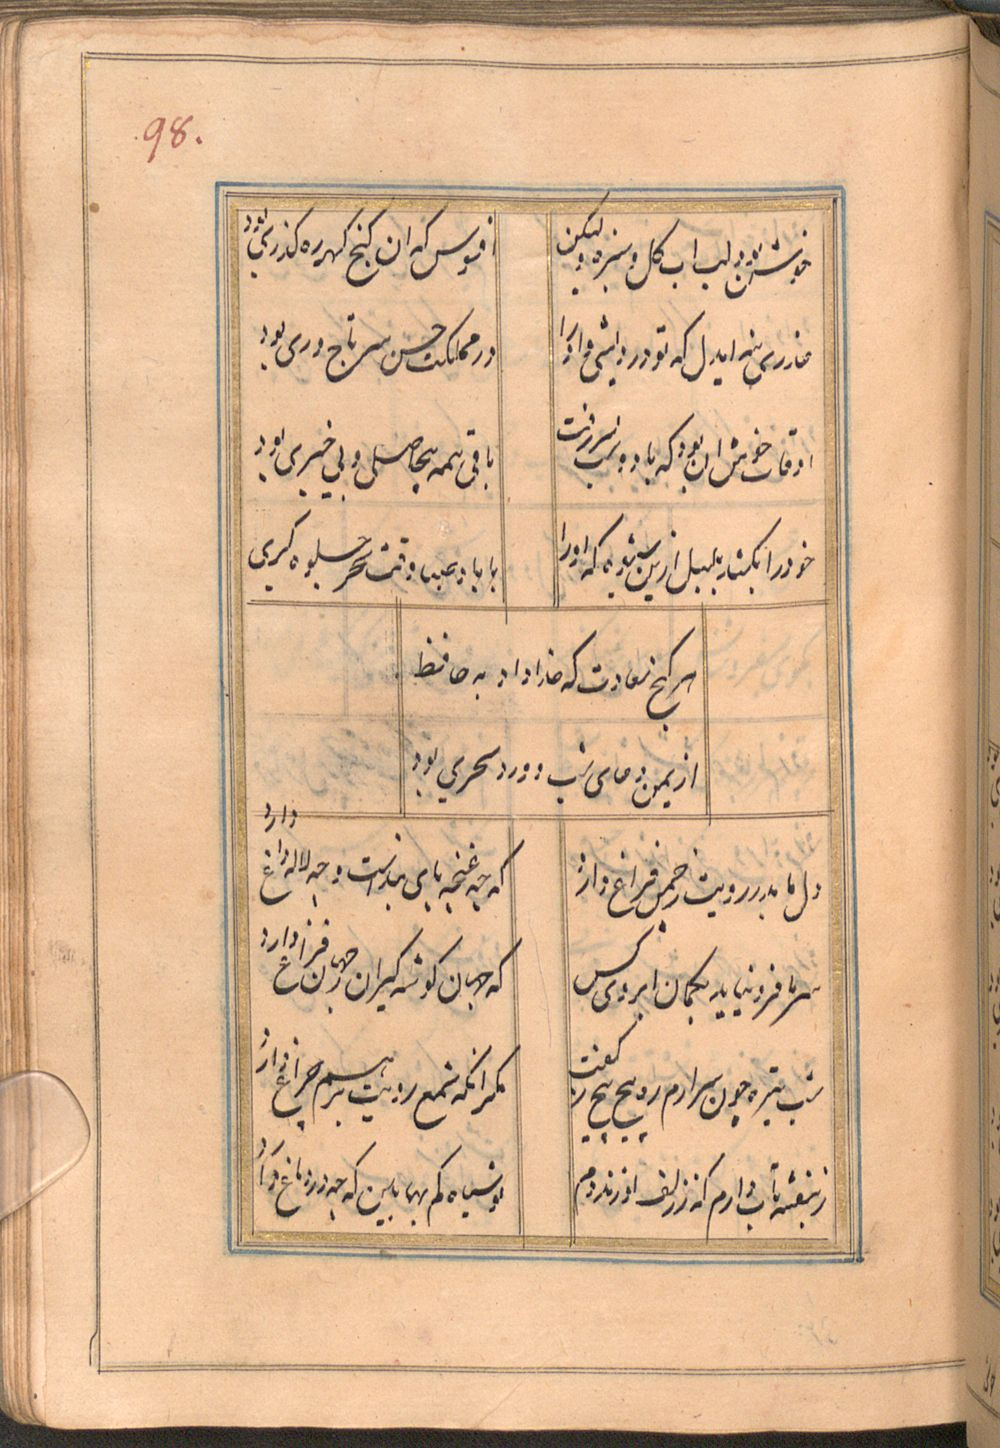 98.
خوش بود لب اب و کل و سبزه ولیکن
افسوس که ان کنج کهر ره کذری بود
عذری بنه ایدل که تو درویشی و او را
در مملکت حسن سر تاج وری بود
اوقات خوش ان بود که با دوست بسر رفت
باقی همه بیحاصلی و بی خبری بود
خود را بکشد بلبل ازین شیوه که او را
با باد صبا وقت سحر جلوه کری
هر کنج سعادت که خدا داد به حافظ
از یمن دعای شب و ورد سحری بود
دل ما بدور رویت ز چمن فراغ دارد
که چه غنچه پای بندست و چه لاله داغ دارد
سر ما فرو نیاید بکمان ابروی کس
که جهان کوشه کیران ز جهان فراغ دارد
شب تیره چون سرارم ره پیچ پیچ زلفت
مکر انکه شمع رویت برهم چراغ دارد
ز بنفشه تاب دارم که ز زلف او زند دم
تو سیاه کم بها بین که چه در دماغ دارد